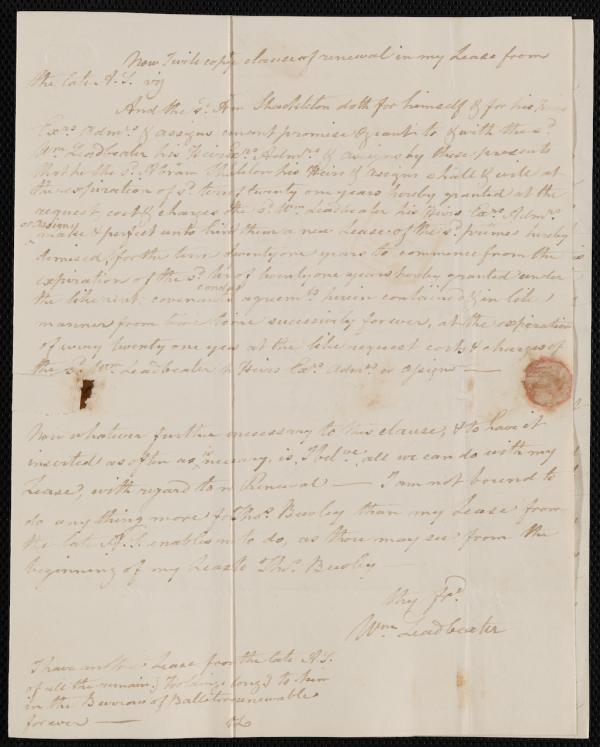 Now I will copy clause of renewal in my Lease from
the late A.S. viz
And the sd. Abm Shackleton doth for himself & for his Heirs
Exrs. Admrs. & assigns covenant promise & grant to & with the sd.
Wm. Leadbeater his Heirs Exrs. Admrs. & assigns by these presents
that he the sd. Abram Shackleton his Heirs & assigns shall & will at
the expiration of sd. term of twenty one years hereby granted at the
request, cost & charges the sd. Wm. Leadbeater his Heirs Exrs. Admrs.
or assigns
make & perfect unto him them a new Lease of the sd. premes hereby
demised, for the term twenty one years to commence from the
expiration of the sd. term of twenty one years hereby granted under
condns
the like rent, covenants agreemts. herein contained & in like
manner from time time sucessively forever, at the expiration
of every twenty one years at the like request costs & charges of
the sd. Wm. Leadbeater his Heirs Exrs. Admrs. or assigns —
Now whatever further necessary to this clause, & to have it
inserted as often as necessary, is, I belve. all we can do with my
Lease, with regard to Renewal — I am not bound to
do any thing more for Thos. Bewley than my Lease from
the late A.S. enables me to do, as thou may see from the
beginning of my Lease to Thos. Bewley —
thy frd.
Wm. Leadbeater
I have another Lease from the late A.S.
of all the remaing Holdings longg to him
in the Burrow of Ballitore renewable
forever —